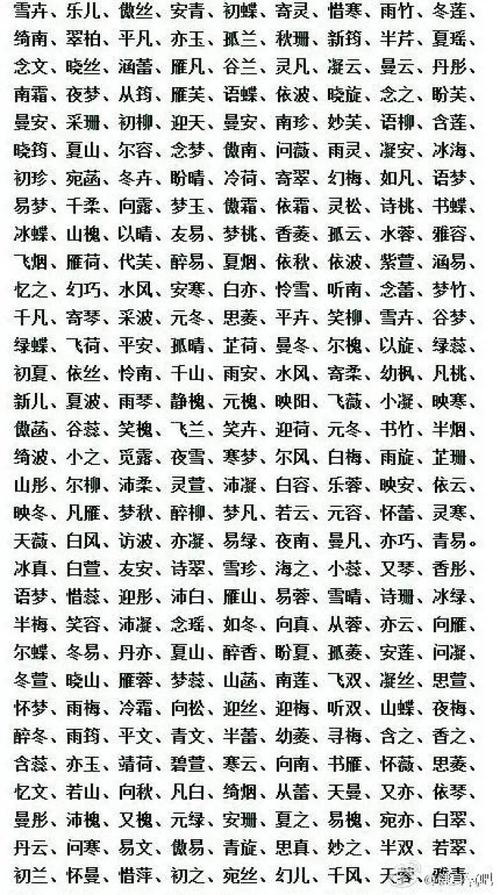 雪卉、乐儿、傲丝、安青、初蝶、寄灵、惜寒、雨竹、冬莲、
绮南、翠柏、平凡、亦玉、孤兰、秋珊、新筠、半芹、夏瑶、
念文、晓丝、涵蕾、雁凡、谷兰、灵凡、凝云、曼云、丹彤、
南霜、夜梦、从筠、雁芙、语蝶、依波、晓旋、念之、盼芙、
曼安、采珊、初柳、迎天、曼安、南珍、妙芙、语柳、含莲、
晓筠、夏山、尔容、念梦、傲南、问薇、雨灵、凝安、冰海、
初珍、宛菡、冬卉、盼晴、冷荷、寄翠、幻梅、如凡、语梦、
易梦、千柔、向露、梦玉、傲霜、依霜、灵松、诗桃、书蝶、
冰蝶、山槐、以晴、友易、梦桃、香菱、孤云、水蓉、雅容、
飞烟、雁荷、代芙、醉易、夏烟、依秋、依波、紫萱、涵易、
忆之、幻巧、水风、安寒、白亦、怜雪、听南、念蕾、梦竹、
千凡、寄琴、采波、元冬、思菱、平卉、笑柳、雪卉、谷梦、
绿蝶、飞荷、平安、孤晴、芷荷、曼冬、尔槐、以旋、绿蕊、
初夏、依丝、怜南、千山、雨安、水风、寄柔、幼枫、凡桃、
新儿、夏波、雨琴、静槐、元槐、映阳、飞薇、小凝、映寒、
傲菡、谷蕊、笑槐、飞兰、笑卉、迎荷、元冬、书竹、半烟、
绮波、小之、觅露、夜雪、寒梦、尔风、白梅、雨旋、芷珊、
山彤、尔柳、沛柔、灵萱、沛凝、白容、乐蓉、映安、依云、
映冬、凡雁、梦秋、醉柳、梦凡、若云、元容、怀蕾、灵寒、
天薇、白风、访波、亦凝、易绿、夜南、曼凡、亦巧、青易。
冰真、白萱、友安、诗翠、雪珍、海之、小蕊、又琴、香彤、
语梦、惜蕊、迎彤、沛白、雁山、易蓉、雪晴、诗珊、冰绿、
半梅、笑容、沛凝、念瑶、如冬、向真、从蓉、亦云、向雁、
尔蝶、冬易、丹亦、夏山、醉香、盼夏、孤菱、安莲、问凝、
冬萱、晓山、雁蓉、梦蕊、山菡、南莲、飞双、凝丝、思萱、
怀梦、雨梅、冷霜、向松、迎丝、迎梅、听双、山蝶、夜梅、
醉冬、雨筠、平文、青文、半蕾、幼菱、寻梅、含之、香之、
含蕊、亦玉、靖荷、碧萱、寒云、向南、书雁、怀薇、思菱、
忆文、若山、向秋、凡白、绮烟、从蕾、天曼、又亦、依琴、
曼彤、沛槐、又槐、元绿、安珊、夏之、易槐、宛亦、白翠、
丹云、问寒、易文、傲易、青旋、思真、妙之、半双、若翠、
初兰、怀曼、惜萍、初之、宛丝、幻儿、千风、天蓉、雅青